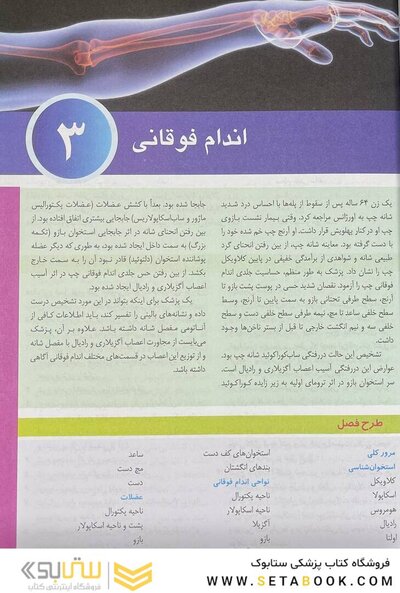 ۳
اندام فوقانی
یک زن ۶۴ ساله پس از سقوط از پله‌ها با احساس درد شدید
شانه چپ به اورژانس مراجعه کرد. وقتی بیمار نشست بازوی
چپ او در کنار پهلویش قرار داشت. او آرنج چپ خم شده خود را
با دست گرفته بود. معاینه شانه چپ، از بین رفتن انحنای گرد
طبیعی شانه و شواهدی از برآمدگی خفیفی در پایین کلاویکل
چپ را نشان داد. پزشک به طور منظم، حساسیت جلدی اندام
فوقانی چپ را آزمود. نقصان شدید حسی در پوست پشت بازو تا
آرنج، سطح طرفی تحتانی بازو به سمت پایین تا آرنج، وسط
سطح خلفی ساعد تا مچ، نیمه طرفی سطح خلفی دست و سطح
خلفی سه و نیم انگشت خارجی تا قبل از بستر ناخن‌ها وجود
داشت.
تشخیص این حالت دررفتگی ساب‌کوراکوئید شانه چپ بود.
عوارض این دررفتگی آسیب اعصاب آگزیلاری و رادیال است.
سر استخوان بازو در اثر ترومای اولیه به زیر زایده کوراکوئید
جابجا شده بود. بعداً با کشش عضلات (عضلات پکتورالیس
ماژور و ساب‌اسکاپولاریس) جابجایی بیشتری اتفاق افتاده بود. از
بین رفتن انحنای شانه در اثر جابجایی استخوان بازو (تکمه
بزرگ) به سمت داخل ایجاد شده بود، به طوری که دیگر عضله
پوشاننده استخوان (دلتوئید) قادر نبود آن را به سمت خارج
بکشد. از بین رفتن حس جلدی اندام فوقانی چپ در اثر آسیب
اعصاب آگزیلاری و رادیال ایجاد شده بود.
یک پزشک برای اینکه بتواند در این مورد تشخیص درست
داده و نشانه‌های بالینی را تفسیر کند، باید اطلاعات کافی از
آناتومی مفصل شانه داشته باشد. علاوه بر آن، پزشک
می‌بایست از مجاورت اعصاب آگزیلاری و رادیال با مفصل شانه
و از توزیع این اعصاب در قسمت‌های مختلف اندام فوقانی آگاهی
داشته باشد.
طرح فصل
مرور کلی
استخوان‌شناسی
کلاویکل
اسکاپولا
هومروس
رادیال
اولنا
استخوان‌های کف دست
بندهای انگشتان
نواحی اندام فوقانی
ناحیه پکتورال
ناحیه اسکاپولار
آگزیلا
بازو
ساعد
مچ دست
دست
عضلات
ناحیه پکتورال
پشت و ناحیه اسکاپولار
بازو
فروشگاه کتاب پزشکی ستابوک
WWW.SETABOOK.COM
ستابوک
فروشگاه اینترنتی کتاب